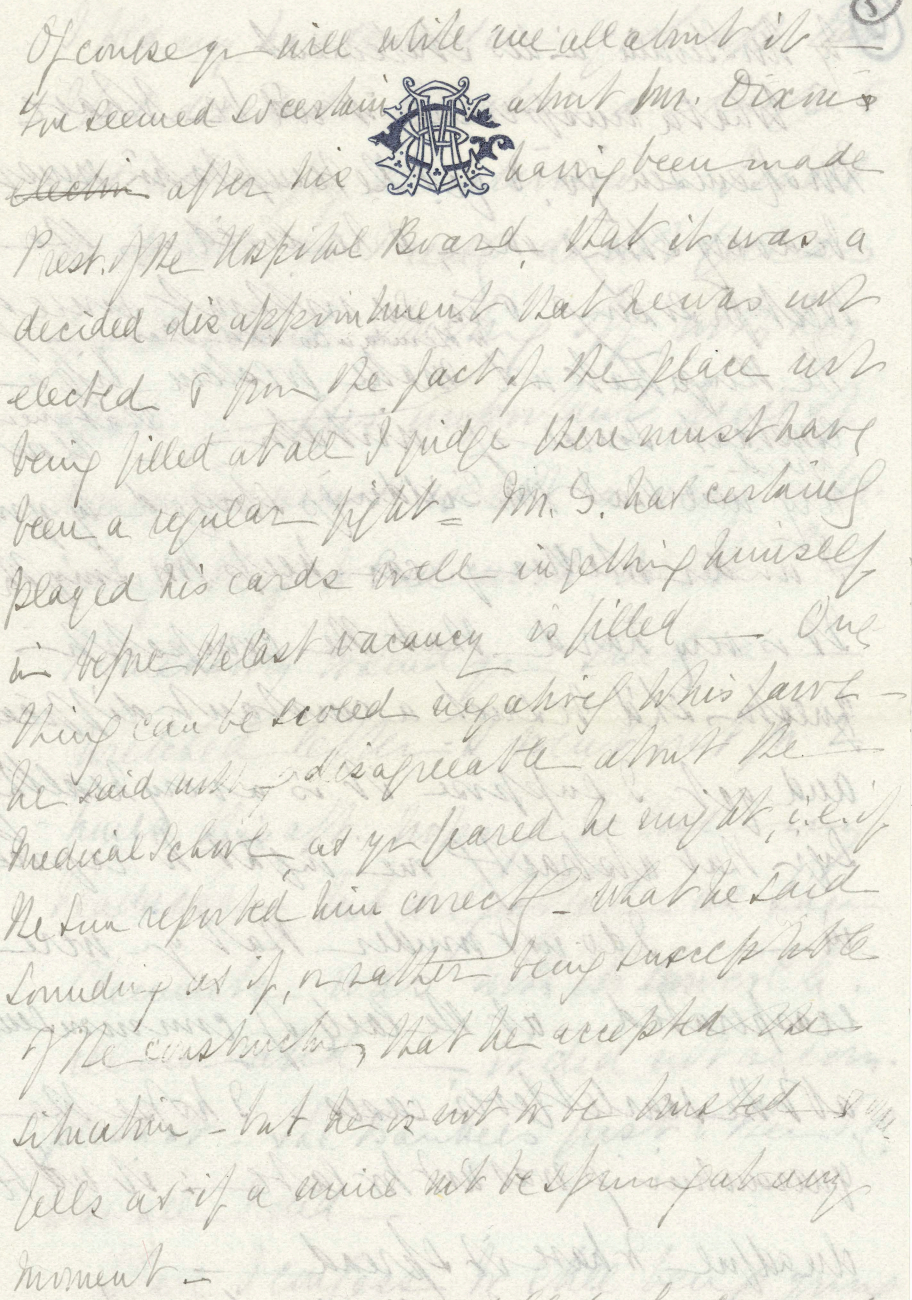 Of course yr will write me all about it —
You seemed so certain about Mr. Dixon's
election after his having been made
Prest. of the Hospital Board, that it was a
decided disappointment that he was not
elected & from the fact of the place not
being filled at all I judge there must have
been a regular fight = Mr. G. has certainly
played his cards well in getting himself
in before the last vacancy is filled — One
thing can be scored negatively to his favor —
he said nothg disagreeable about the
Medical School, as yr feared he might, i.e. if
the Sun reported him correctly — what he said
sounding as if, or rather being susceptible
of the construction, that he accepted the
situation — but he is not to be trusted &
feels as if a mine mt be sprung at any
moment —